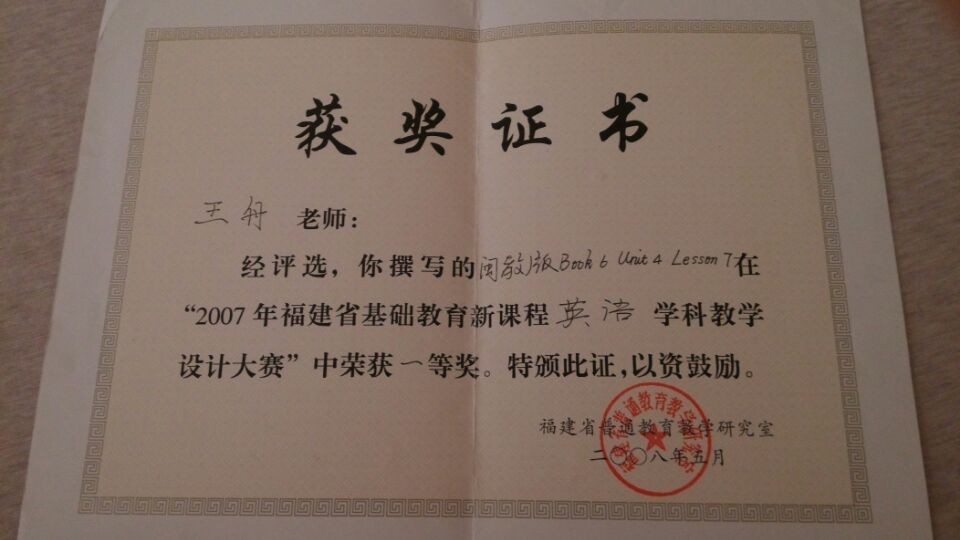 获奖证书
王舟 老师：
经评选，你撰写的闽教版Book 6 Unit 4 Lesson 7在
“2007年福建省基础教育新课程英语学科教学
设计大赛”中荣获一等奖。特颁此证，以资鼓励。
福建省普通教育教学研究室
二〇〇八年五月
福建省普通教育教学研究室